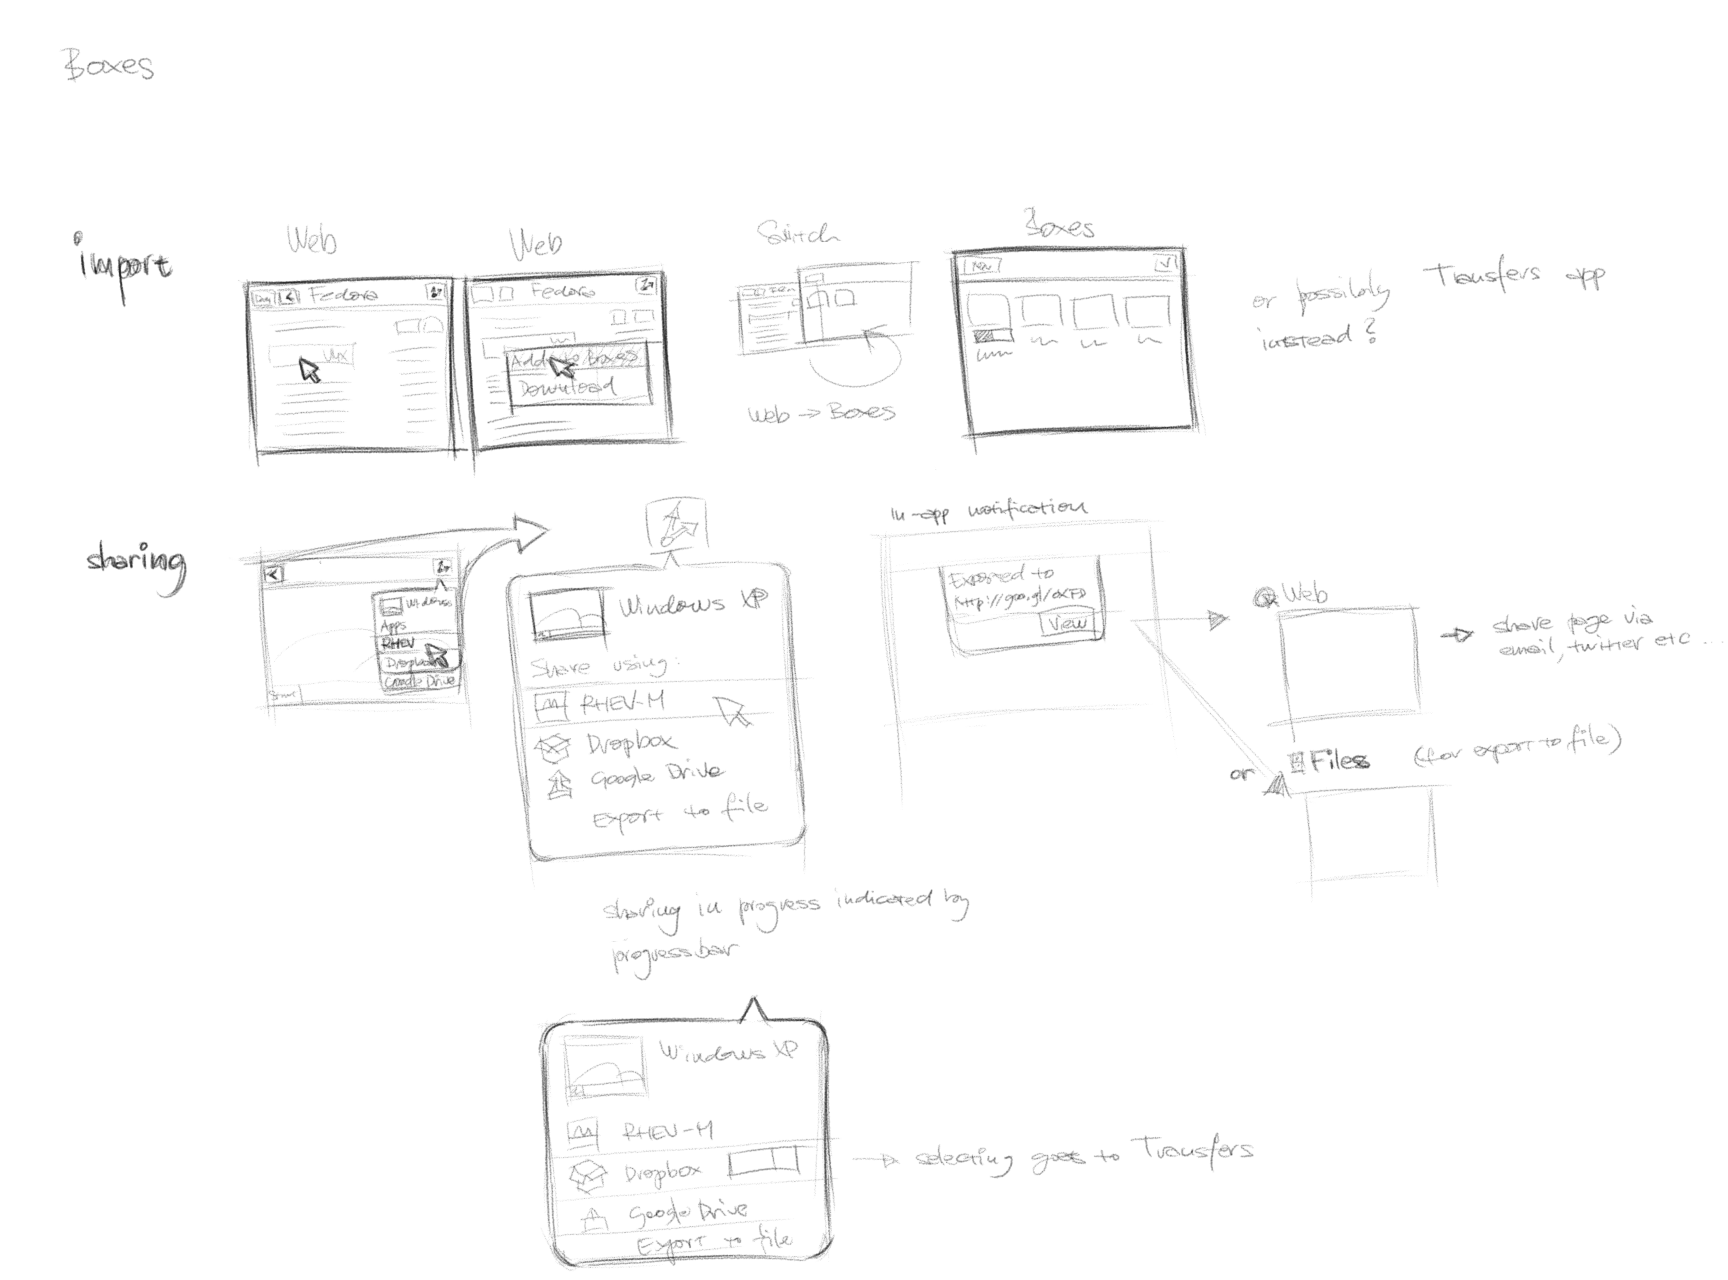 Boxes
import
Web
Fedora
Web
Fedora
Add to Boxes
Download
Switch
Web → Boxes
Boxes
or possibly Transfers app
instead?
sharing
Windows
Apps
RHEV
Dropbox
Google Drive
Windows XP
Share using:
RHEV-M
Dropbox
Google Drive
Export to file
In-app notification
Exported to
View
Web
share page via
email, twitter etc...
or
Files (for export to file)
sharing in progress indicated by
progressbar
Windows XP
RHEV-M
Dropbox
Google Drive
Export to file
→ selecting goes to Transfers